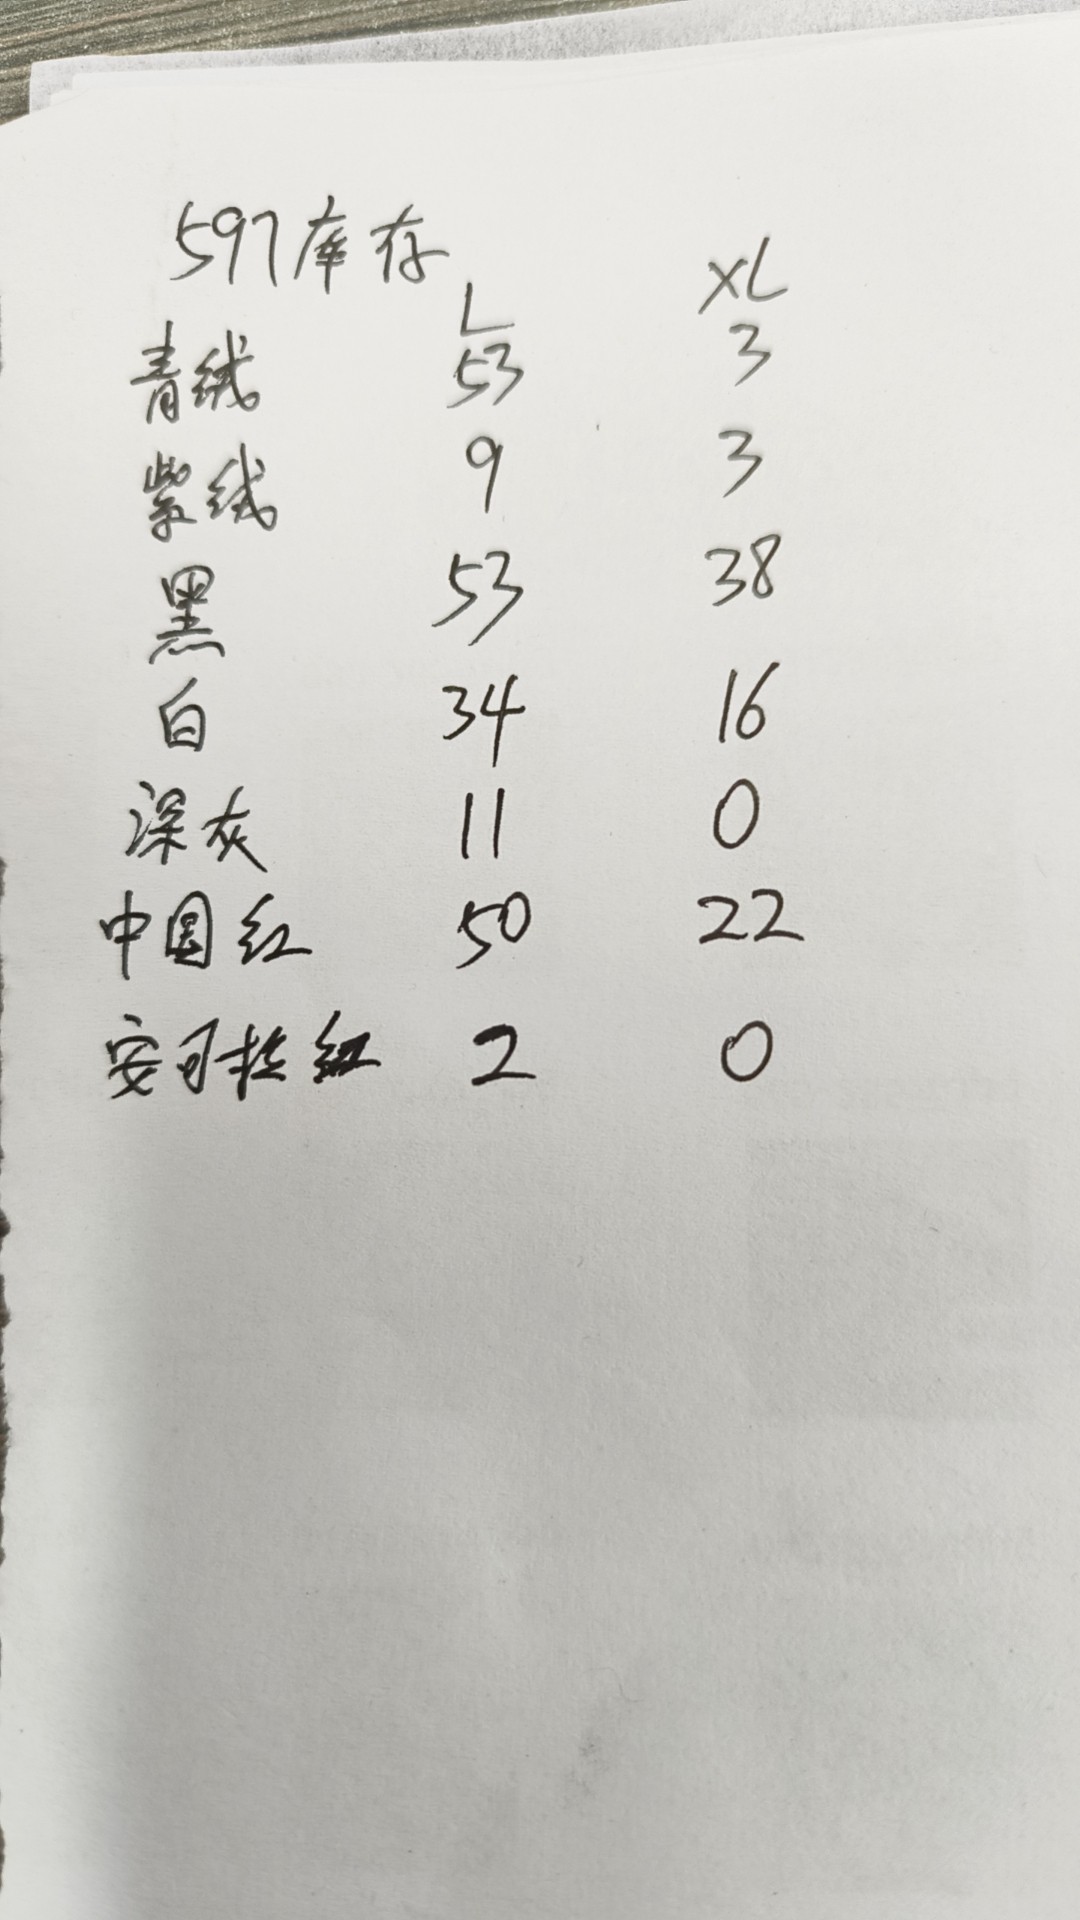 597库存
L XL
青绒 53 3
紫绒 9 3
黑 53 38
白 34 16
深灰 11 0
中国红 50 22
安可拉红 2 0